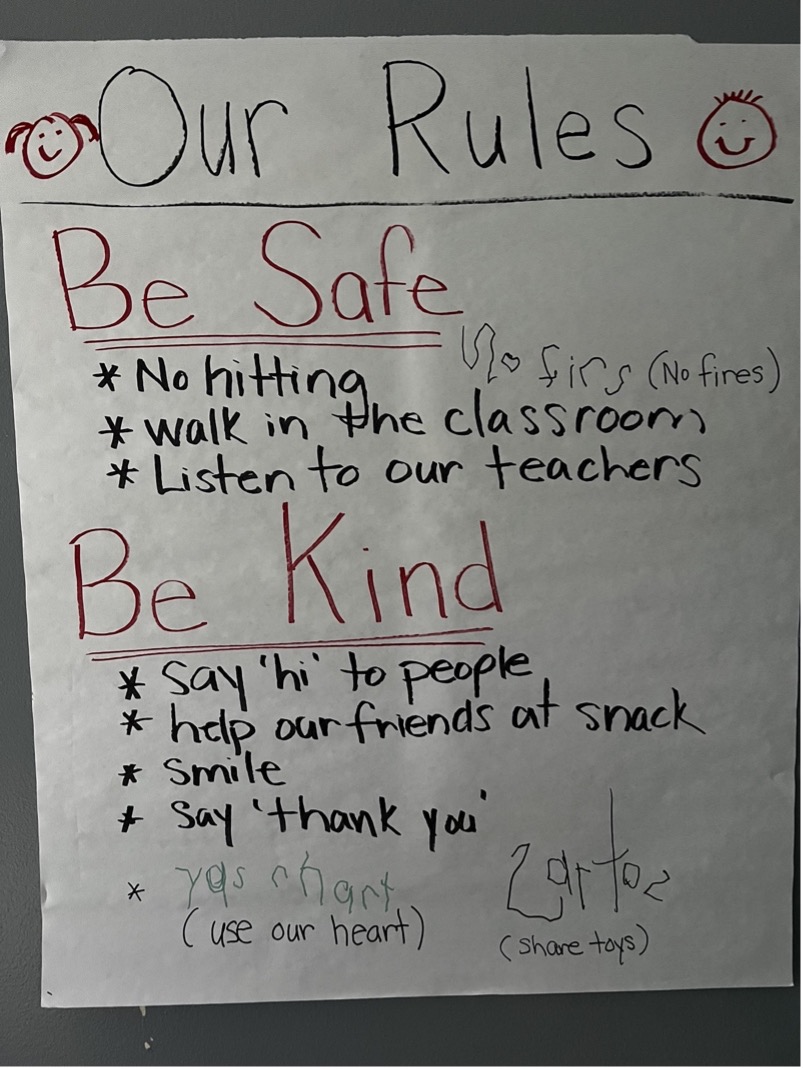 Our Rules
Be Safe
No firs (No fires)
* No hitting
* walk in the classroom
* Listen to our teachers
Be Kind
* say 'hi' to people
* help our friends at snack
* smile
* say 'thank you'
* yas rhart
(use our heart)
Zartoz
(share toys)